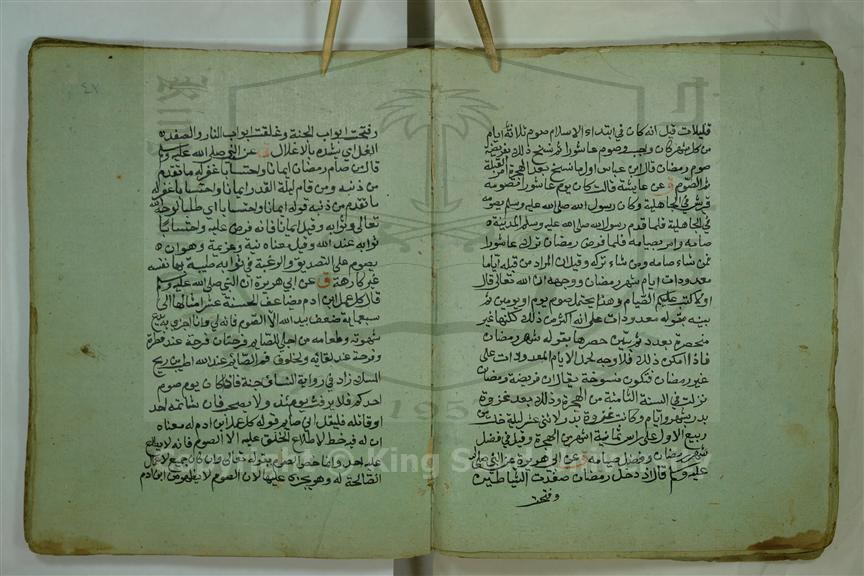 قليلات قيل انه كان في ابتداء الاسلام صوم ثلاثة ايام
من كل شهر كان واجب وصوم عاشورا ثم نسخ ذلك بفريضة
صوم رمضان قال ابن عباس اول ما نسخ بعد الهجرة امر القبلة
ثم الصوم ق عن عايشة قالت كان يوم عاشورا تصومه
قريش في الجاهلية وكان رسول الله صلى الله عليه وسلم يصومه
في الجاهلية فلما قدم رسول الله صلى الله عليه وسلم المدينة
صامه وامر بصيامه فلما فرض رمضان ترك عاشورا
فمن شاء صامه ومن شاء تركه وقيل ان المراد من قوله اياما
معدودات ايام شهر رمضان ووجهه ان الله تعالى قال
اولا كتب عليكم الصيام وهذا يحتمل صوم يوم او يومين ثم
بينه بقوله معدودات على انه اكثر من ذلك لكنها غير
منحصرة بعدد ثم بين حصرها بقوله شهر رمضان
فاذا امكن ذلك فلا وجه لحمل الايام المعدودات على
غير رمضان فتكون منسوخة يقال ان فريضة رمضان
نزلت في السنة الثامنة من الهجرة وذلك بعد غزوة
بدر بشهر وايام وكانت غزوة بدر لاثنى عشر ليلة خلت من
ربيع الاول على راس ثمانية اشهر من الهجرة وقيل في فضل
شهر رمضان وفضل صيامه ق عن ابي هريرة عن النبي صلى الله
عليه وسلم قال اذا دخل رمضان صفدت الشياطين
وفتحت
وفتحت ابواب الجنة وغلقت ابواب النار والصفد
الغل اي شده بالاغلال ق عن النبي صلى الله عليه وسلم
قال من صام رمضان ايمانا واحتسابا غفر له ما تقدم
من ذنبه ومن قام ليلة القدر ايمانا واحتسابا غفر له
ما تقدم من ذنبه قوله ايمانا واحتسابا اي طلبا لوجه الله
تعالى وثوابه وقيل ايمانا فانه فرض عليه واحتسابا
ثوابه عند الله وقيل معناه نية وعزيمة وهو ان
يصوم على التصديق والرغبة في ثوابه طيبة بها نفسه
غير كارهة ق عن ابي هريرة ان النبي صلى الله عليه وسلم
قال كل عمل ابن ادم يضاعف الحسنة عشر امثالها الى
سبعماية ضعف الله الا الصوم فانه لي وانا اجزي به يدع
شهوته وطعامه من اجلي للصايم فرحتان فرحة عند فطره
وفرحة عند لقائه ولخلوف فم الصايم عند الله اطيب من ريح
المسك زاد في رواية الصيام جنة فاذا كان يوم صوم
احدكم فلا يرفث يومئذ ولا يصخب فان شاتمه احد
او قاتله فليقل اني صايم قوله كل عمل ابن ادم له معناه
ان له فيه حظ لاطلاع الخلق عليه الا الصوم فانه لا يطلع
عليه احد وانما خص الصوم بقوله تعالى وان كان جميع الاعمال
الصالحة له وهو يجزي عليها لان الصوم لا يظهر من ابن ادم
1957
© King Saud University